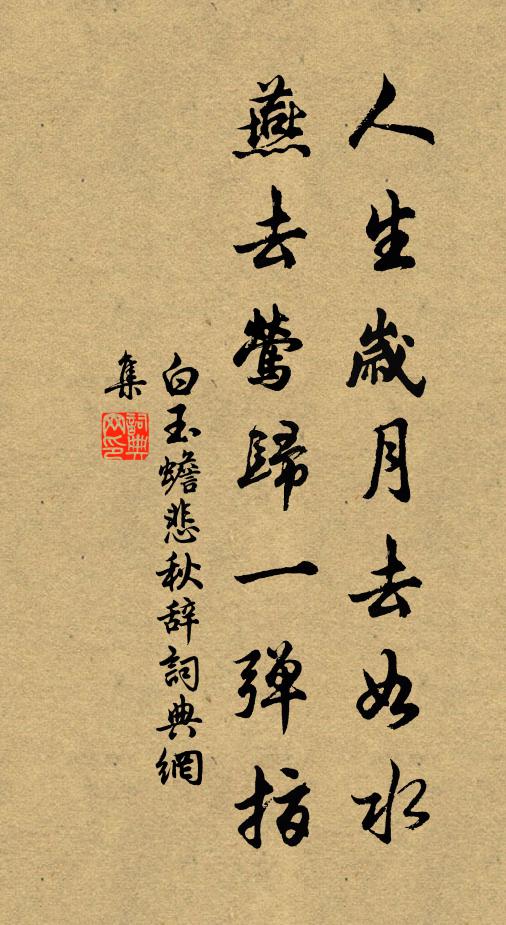 人生歲月去如水
燕去鶯歸一彈指
白玉蟾悲秋辞詞典網
集
詞典
网印